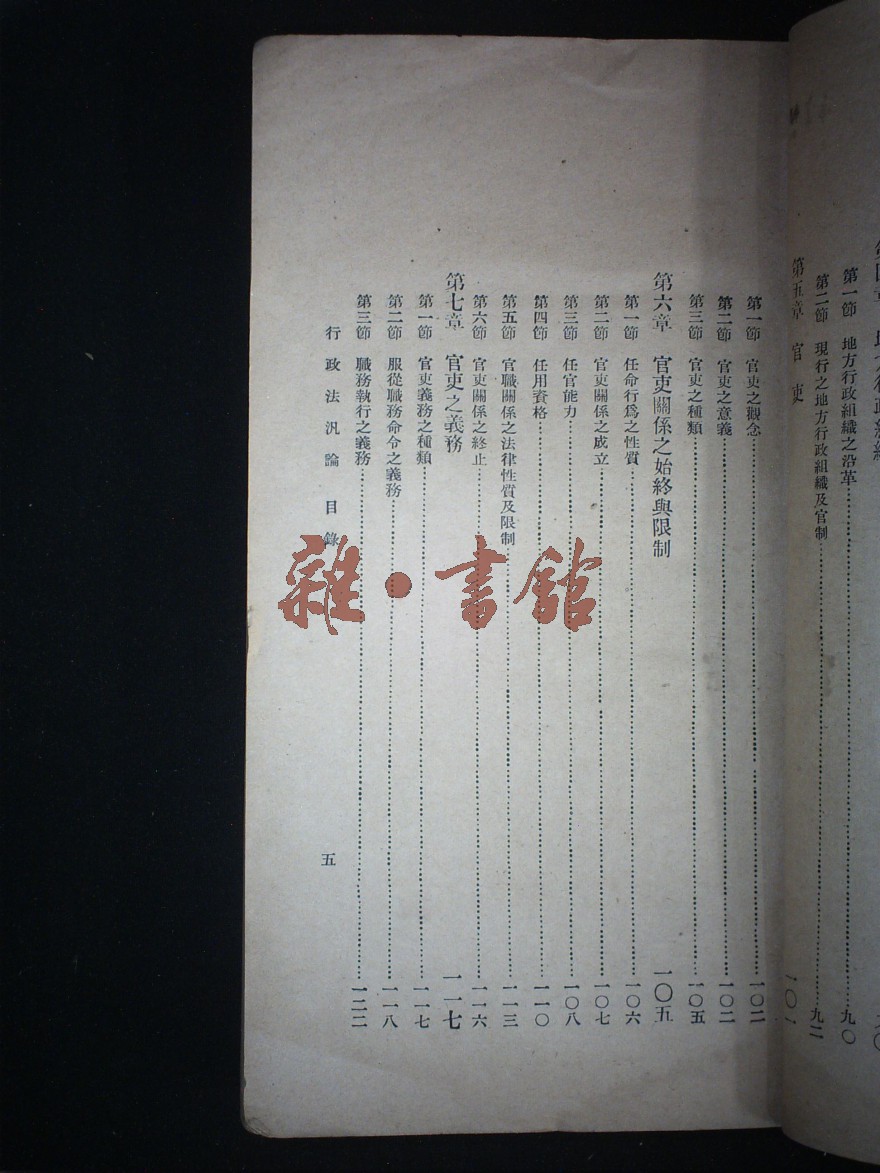 第一節 地方行政組織之沿革……九〇
第二節 現行之地方行政組織及官制……九二
第五章 官吏
第一節 官吏之觀念……一〇二
第二節 官吏之意義……一〇二
第三節 官吏之種類……一〇五
第六章 官吏關係之始終與限制 一〇五
第一節 任命行爲之性質……一〇六
第二節 官吏關係之成立……一〇七
第三節 任官能力……一〇八
第四節 任用資格……一一〇
第五節 官職關係之法律性質及限制……一一三
第六節 官吏關係之終止……一一六
第七章 官吏之義務 一一七
第一節 官吏義務之種類……一一七
第二節 服從職務命令之義務……一一八
第三節 職務執行之義務……一二二
行政法汎論 目錄 五
雜·書館